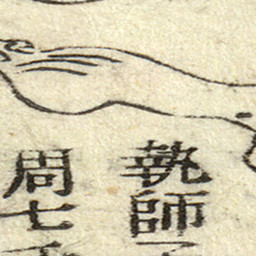 執師
周七